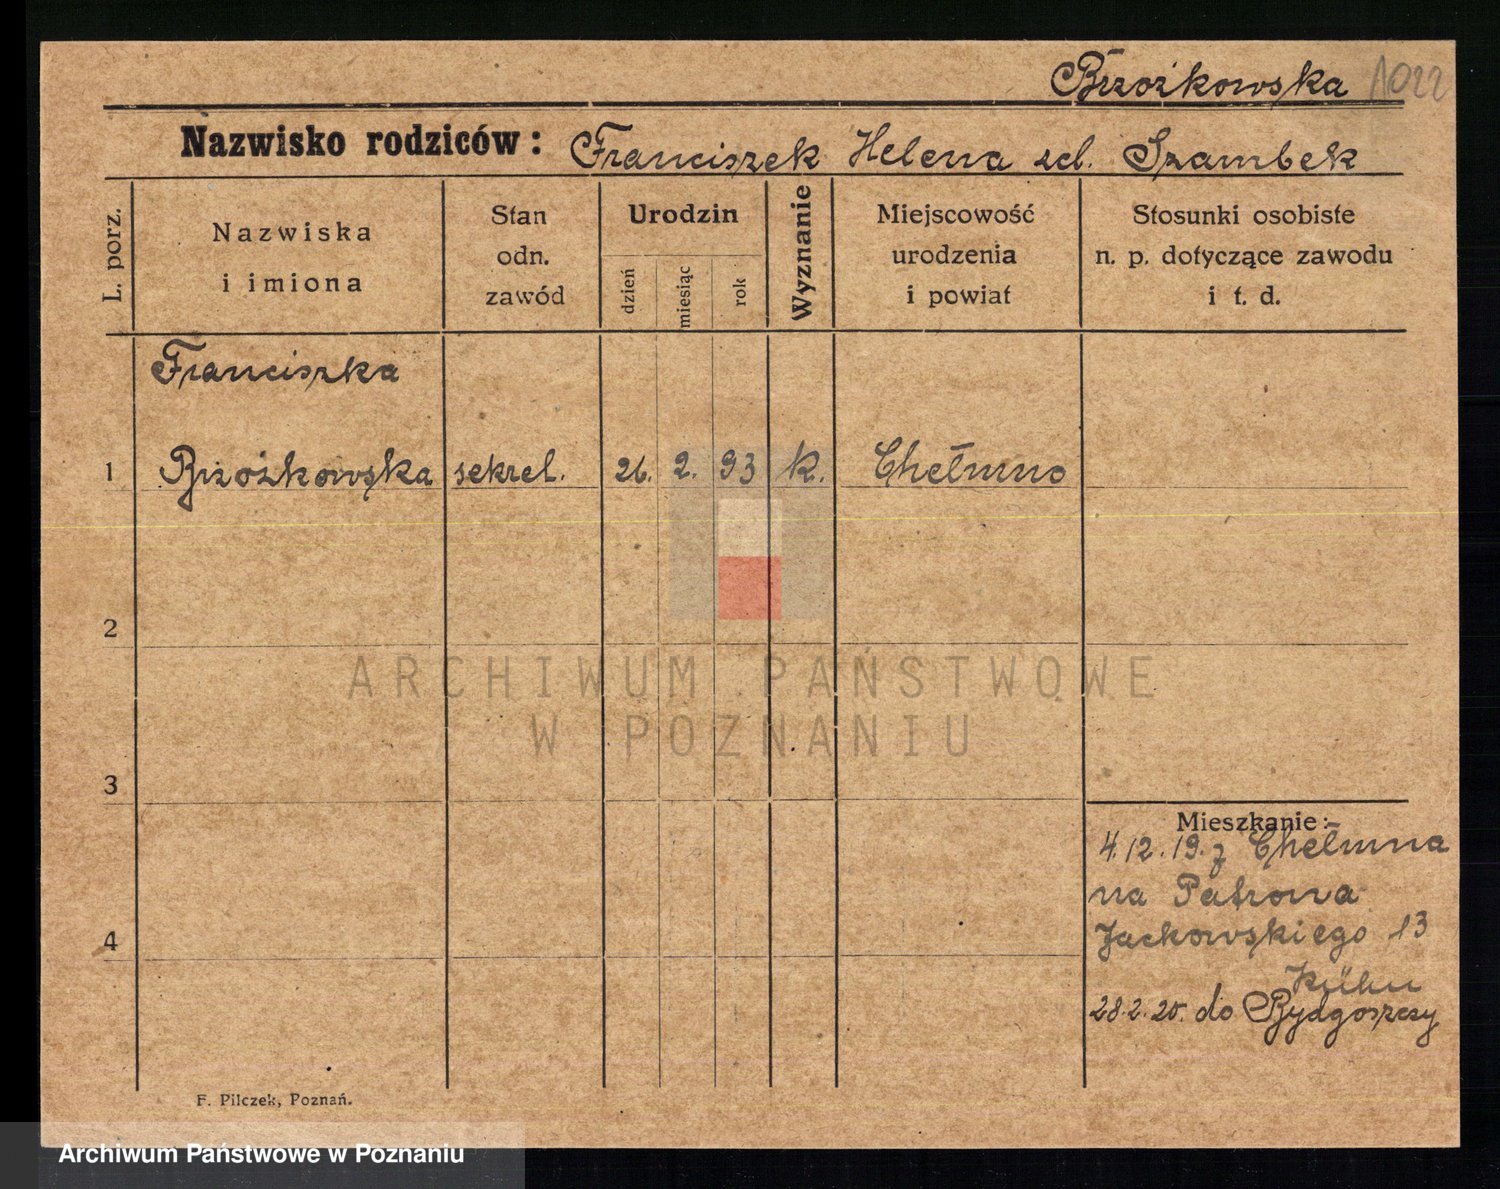 Brzożkowska 1022
Nazwisko rodziców: Franciszek Helena zd. Szambek
L. porz.
Nazwiska
i imiona
Stan
odn.
zawód
Urodzin
dzień
miesiąc
rok
Wyznanie
Miejscowość
urodzenia
i powiat
Stosunki osobiste
n. p. dotyczące zawodu
i t. d.
Franciszka
1 Brzożkowska sekret. 26. 2. 93 k. Chełmno
2
ARCHIWUM PAŃSTWOWE
W POZNANIU
3
Mieszkanie:
4.12.19. z Chełmna
na Patrona
Jackowskiego 13
4
Kühn
28.2.20. do Bydgoszczy
F. Pilczek, Poznań.
Archiwum Państwowe w Poznaniu